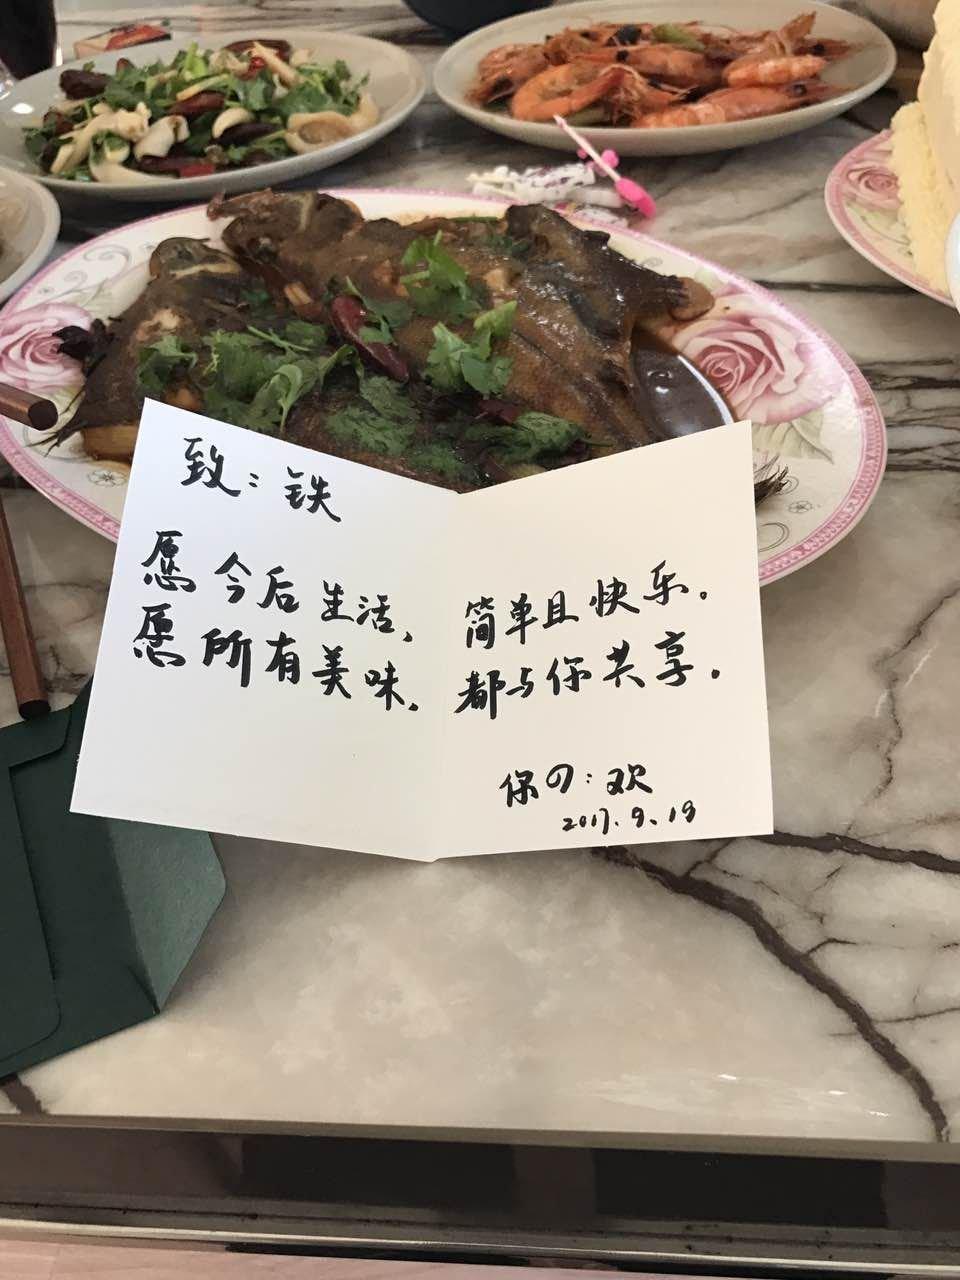 致：铁
愿今后生活，简单且快乐。
愿所有美味，都与你共享。
你的：欢
2017.9.19